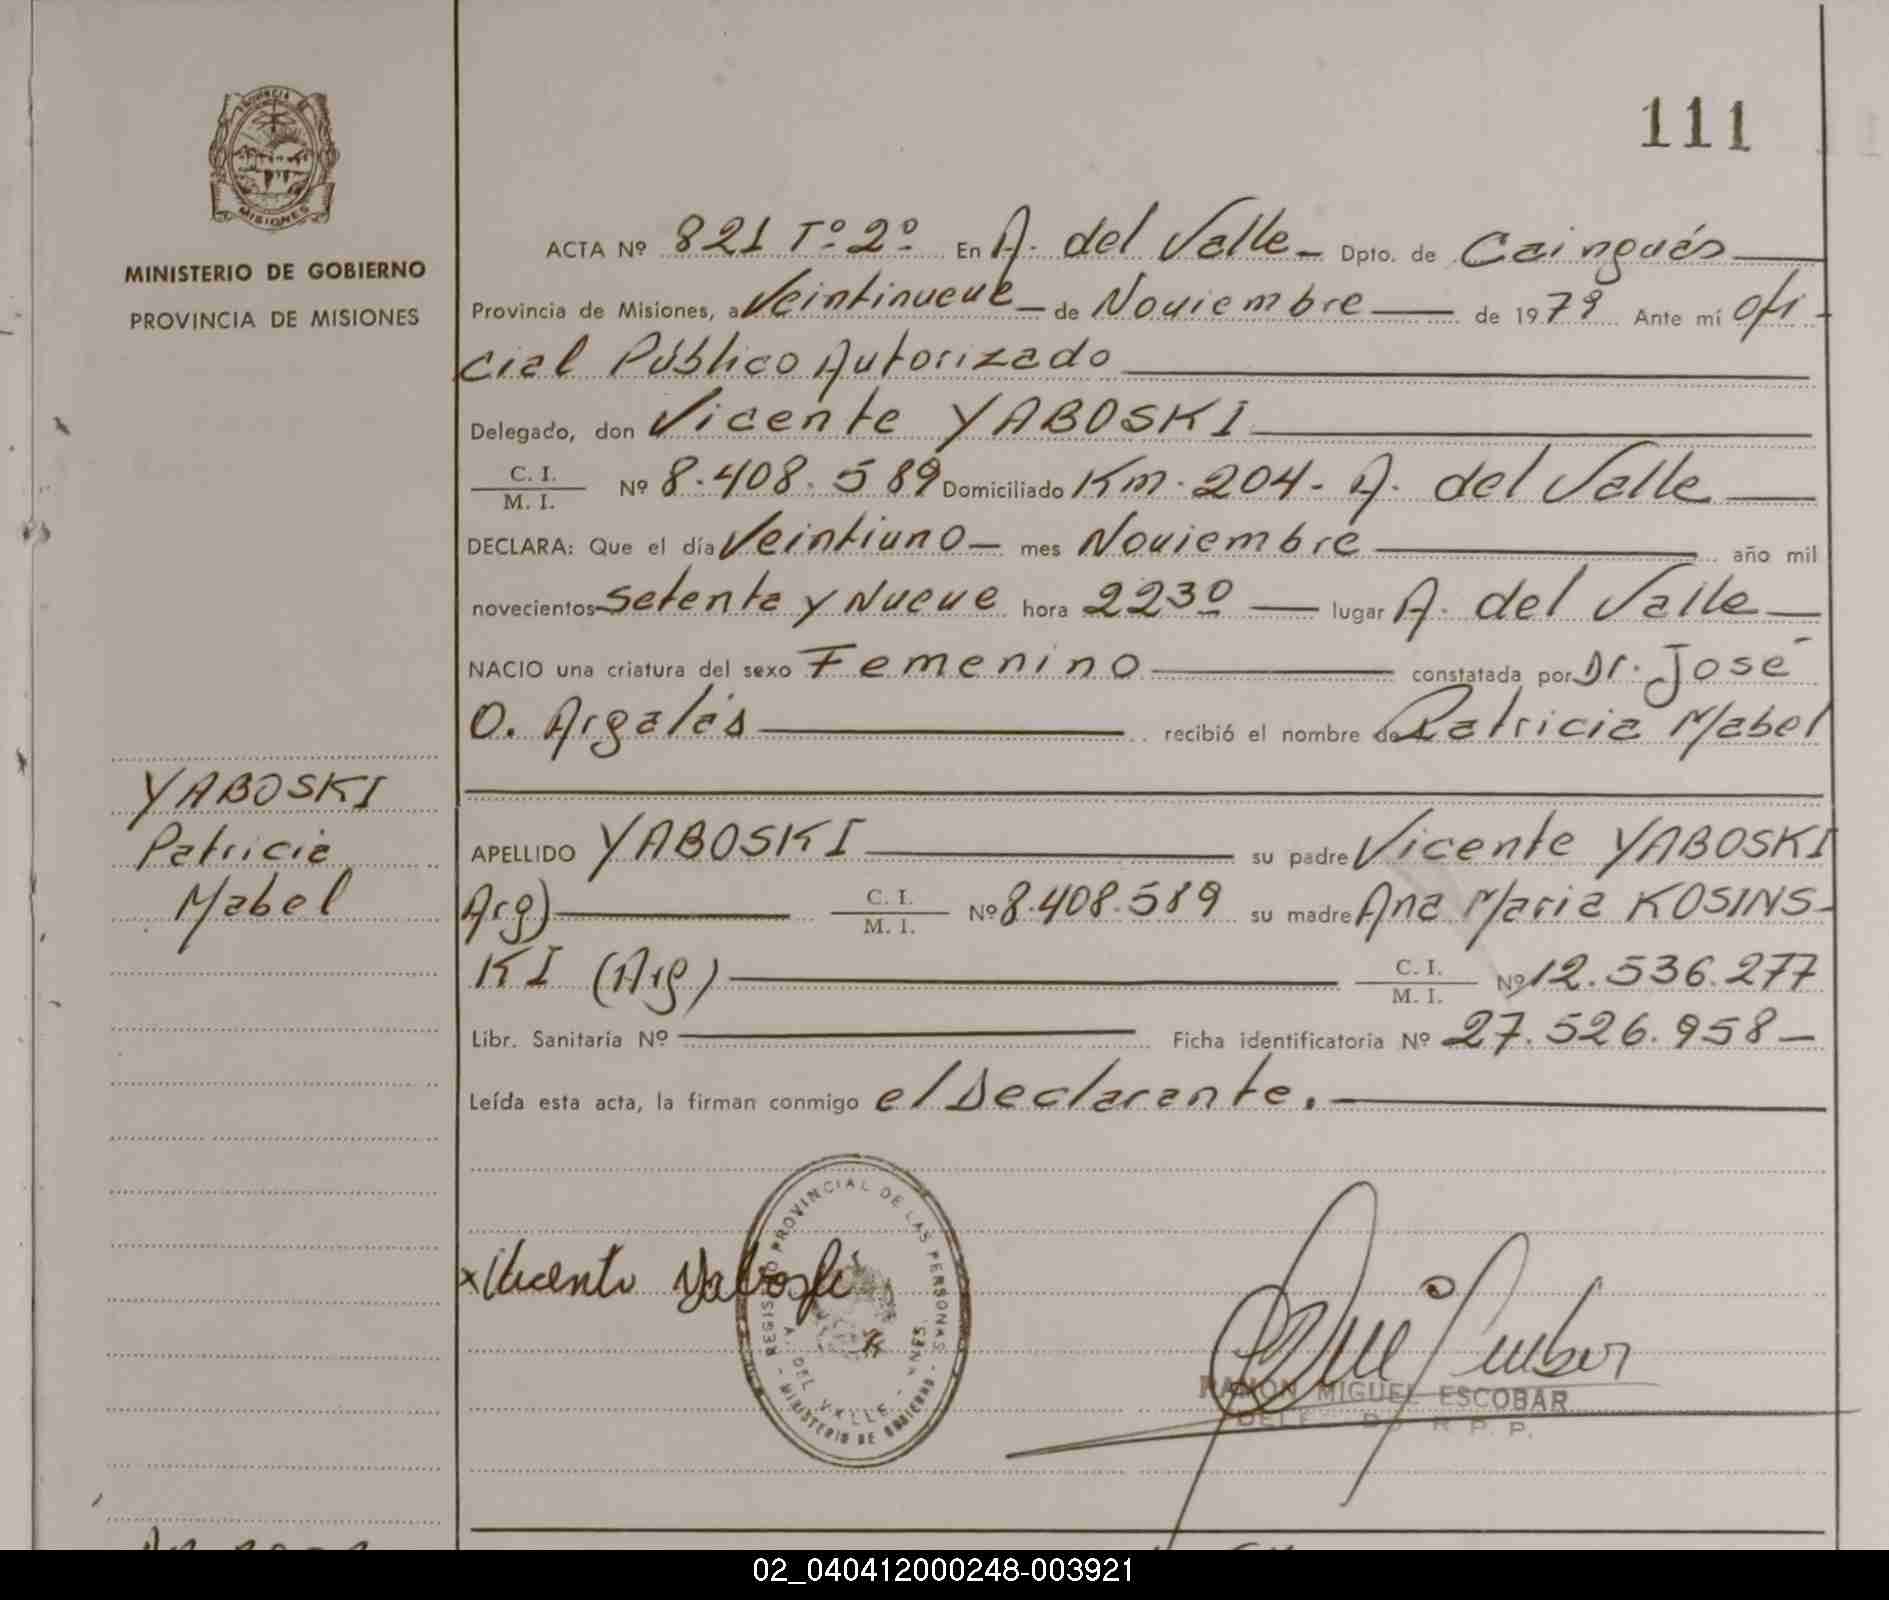 PROVINCIA DE
MISIONES
MINISTERIO DE GOBIERNO
PROVINCIA DE MISIONES
YABOSKI
Patricia
Mabel
111
ACTA Nº 821 Tº 2º En A. del Valle - Dpto. de Cainguás
Provincia de Misiones, a Veintinueve - de Noviembre de 1979 Ante mí Ofi
cial Público Autorizado
Delegado, don Vicente YABOSKI
C. I.
M. I. Nº 8.408.589 Domiciliado Km. 204 - A. del Valle
DECLARA: Que el día Veintiuno - mes Noviembre año mil
novecientos Setenta y Nueve hora 2230 lugar A. del Valle
NACIO una criatura del sexo Femenino constatada por Dr. José
O. Argalás recibió el nombre de Patricia Mabel
APELLIDO YABOSKI su padre Vicente YABOSKI
Arg) C. I.
M. I. Nº 8.408.589 su madre Ana Maria KOSINS-
KI (Arg) C. I.
M. I. Nº 12.536.277
Libr. Sanitaría Nº Ficha identificatoria Nº 27.526.958 -
Leída esta acta, la firman conmigo el Declarante.
REGISTRO PROVINCIAL DE LAS PERSONAS
A. DEL VALLE - MNES.
- MINISTERIO DE GOBIERNO -
x Vicente Yaboski
RAMON MIGUEL ESCOBAR
R. P. P.
02_040412000248-003921